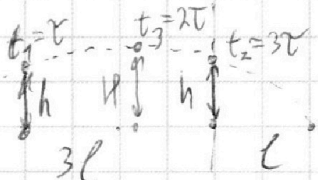 t₁=τ t₃=2τ t₂=3τ
h H h
3l l